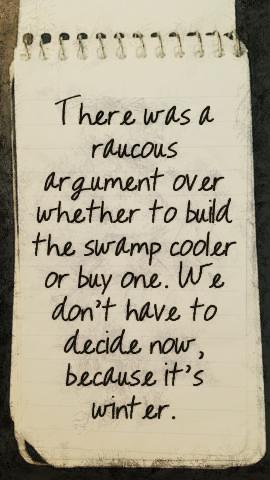 There was a
raucous
argument over
whether to build
the swamp cooler
or buy one. We
don't have to
decide now,
because it's
winter.